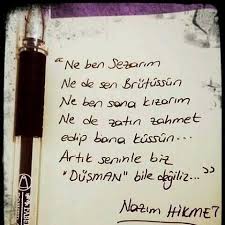 "Ne ben Sezarım
Ne de sen Brütüssün
Ne ben sana kızarım
Ne de zatın zahmet
edip bana küssün...
Artık seninle biz
"DÜŞMAN" bile değiliz..."
Nazım HİKMET